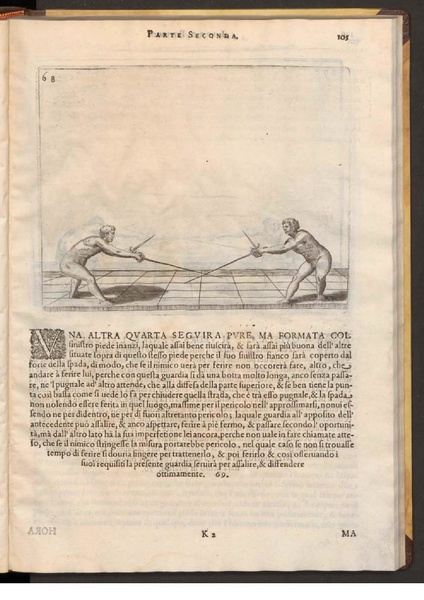 PARTE SECONDA. 105
68
VNA ALTRA QVARTA SEGVIRA PVRE, MA FORMATA COL
sinistro piede inanzi, laquale assai bene riuscirà, & sarà assai più buona dell'altre
situate sopra di questo stesso piede perche il suo sinistro fianco sarà coperto dal
forte della spada, di modo, che se il nimico uerà per ferire non occorerà fare, altro, che
andare à ferire lui, perche con questa guardia si dà una botta molto longa, anco senza passa-
re, ne 'l pugnale ad' altro attende, che alla diffesa della parte superiore, & se ben tiene la pun-
ta così bassa come si uede lo fà per chiudere quella strada, che è trà esso pugnale, & la spada,
non uolendo essere ferita in quel luogo, massime per il pericolo nell'approssimarsi, non ui es-
sendo ne per didentro, ne per di fuori altretanto pericolo; laquale guardia all'apposito dell'
antecedente può assalire, & anco aspettare, ferire à piè fermo, & passare secondo l'oportuni-
tà, mà dall'altro lato hà la sua imperfetione lei ancora, perche non uale in fare chiamate atte-
so, che se il nimico stringesse la misura portarebbe pericolo, nel quale caso se non si trouasse
tempo di ferire si douria fingere per trattenerlo, & poi ferirlo & così osseruando i
suoi requisiti la presente guardia seruirà per assalire, & diffendere
ottimamente. 69.
K 2 MA
HORA